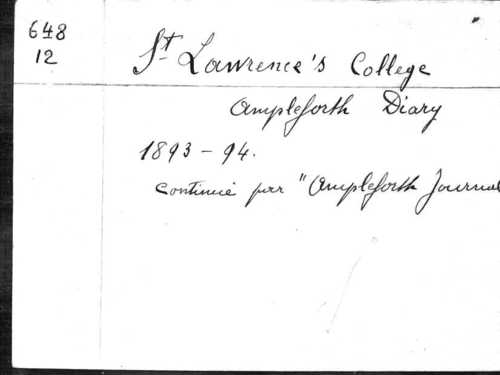 648
12
St Lawrence's College
Ampleforth Diary
1893-94.
continué par "Ampleforth Journal